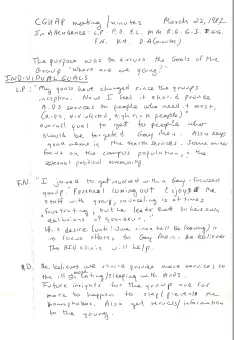 CGHAP meeting/minutes March 22, 1992
In Attendance: L.P. P.D. P.C. M.M R.G. G.S.
F.N. K.H. D.A (minutes)
The purpose was to discuss the Goals of the
Group "where are we going?"
INDIVIDUAL GOALS
L.P: "My goals have changed since the groups
inception. Now I feel it should provide
AIDS services to people who need it most,
(AIDS, HIV infected, high risk people)
overall goal to get to people who
should be targeted Gay Men. Also keep
good name in the Health Services. Some more
focus on the campus population, & the
external political community.
F.N. "I joined to get involved with a Gay-focused
group. Personal coming out. Enjoys the
staff with group, counseling is at times
frustrating, but he leads that to his own
delusions of grandeur."
His desire (until June since he'll be leaving) is
to focus efforts, to Gay Men. He believes
the RED clinic will help.
He believes we should provide more services to
the ill more eating/sleeping with AIDS.
Future insights for the group are for
more to happen to stop/prevent the
homophobes. Also get services/information
to the young.